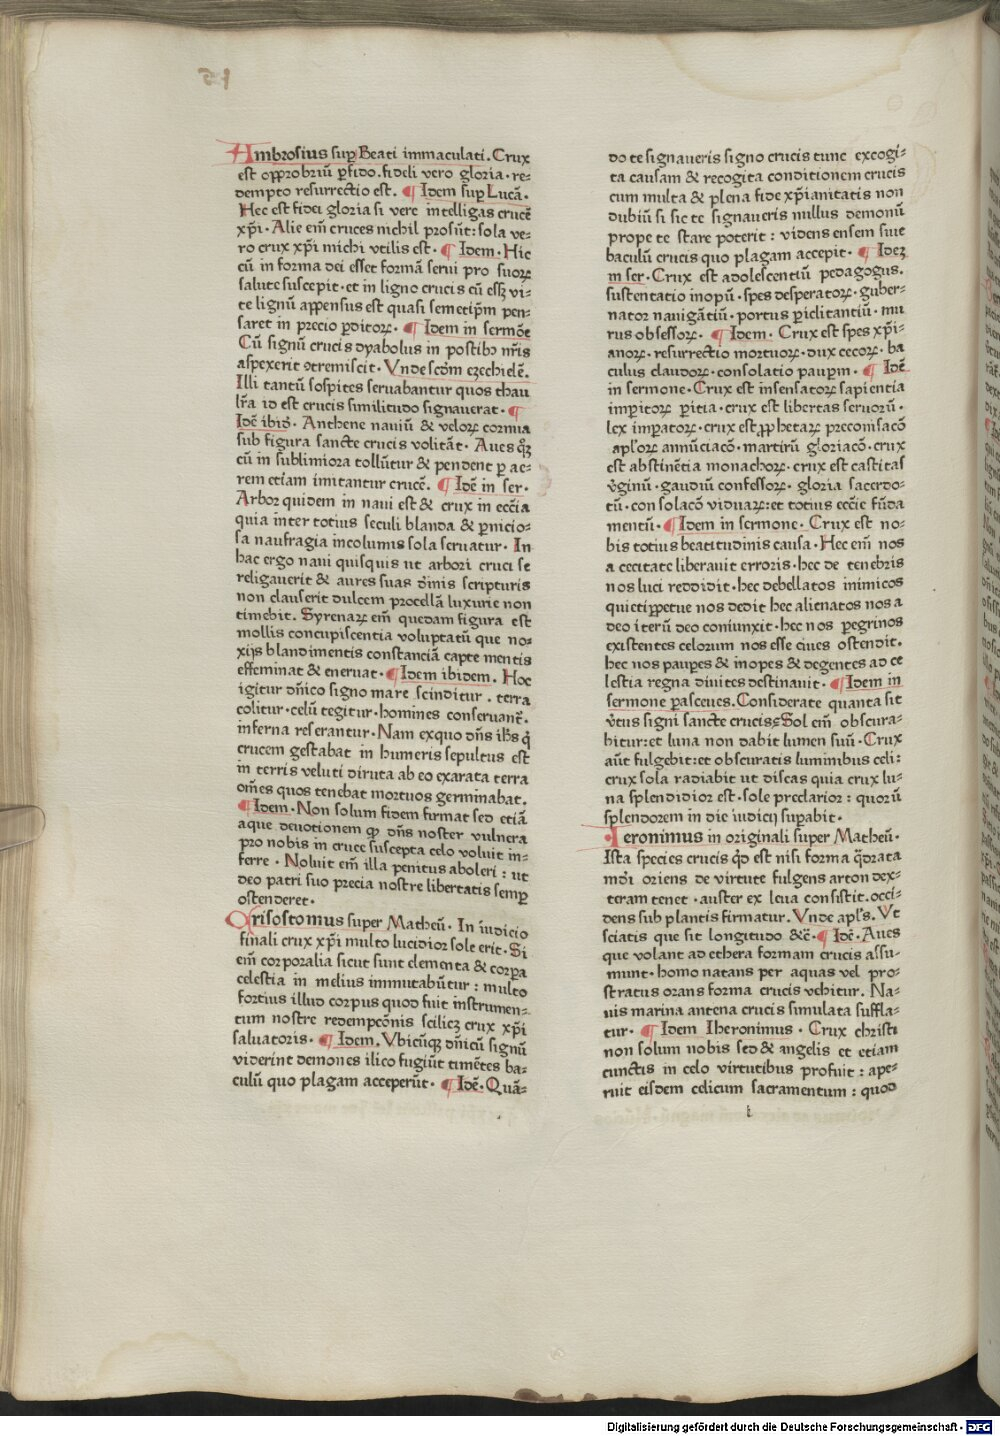 Ambrosius suꝑ Beati immaculati. Crux
est opprobriũ ꝑfido. fideli vero gloria · re⸗
dempto resurrectio est. ¶ Idem suꝑ Lucã.
Hec est fidei gloria si vere intelligas crucẽ
xp̃i · Alie em̃ cruces nichil prosũt: sola ve⸗
ro crux xp̃i michi vtilis est · ¶ Idem · Hic
cũ in forma dei esset formã serui pro suoꝝ
salute suscepit · et in ligno crucis cũ essꝫ vi⸗
te lignũ appensus est quasi semetip̃m pen⸗
saret in precio ꝑditoꝝ. ¶ Idem in sermõe
Cũ signũ crucis dyabolus in postibꝰ nr̃is
aspexerit ꝯtremiscit. Vnde scd̃m ezechielẽ.
Illi tantũ sospites seruabantur quos thau
lr̃a id est crucis similitudo signauerat · ¶
Idẽ ibid̃. Anthene nauiũ & veloꝝ cornua
sub figura sancte crucis volitãt · Aues qꝫ
cũ in sublimiora tollũtur & pendent ꝑ ae⸗
rem etiam imitantur crucẽ. ¶ Idẽ in ser ·
Arbor quidem in naui est & crux in ecc̃ia
quia inter totius seculi blanda & ꝑnicio⸗
sa naufragia incolumis sola seruatur · In
hac ergo naui quisquis ut arbori cruci se
religauerit & aures suas diũnis scripturis
non clauserit dulcem procellã luxurie non
timebit. Syrenaꝝ em̃ quedam figura est
mollis concupiscentia voluptatũ que no⸗
xijs blandimentis constanciã capte mentis
effeminat & eneruat · ¶ Idem ibidem. Hoc
igitur dñico signo mare scinditur. terra
colitur · celũ tegitur · homines conseruant̃.
inferna reserantur · Nam exquo dñs ih̃s q̇
crucem gestabat in humeris sepultus est
in terris veluti diruta ab eo exarata terra
om̃es quos tenebat mortuos germinabat.
¶ Idem · Non solum fidem firmat sed etiã
aque deuotionem ꝙ dñs noster vulnera
pro nobis in cruce suscepta celo voluit in⸗
ferre · Noluit em̃ illa penitus aboleri: ut
deo patri suo precia nostre libertatis semꝑ
ostenderet ·
Crisostomus super Matheũ · In iudicio
finali crux xp̃i multo lucidior sole erit · Si
em̃ corporalia sicut sunt elementa & corpa
celestia in melius immutabũtur: multo
fortius illud corpus quod fuit instrumen⸗
tum nostre redempcõnis scilicꝫ crux xp̃i
saluatoris · ¶ Idem. Vbicũqꝫ dñicũ signũ
viderint demones ilico fugiũt timẽtes ba⸗
culũ quo plagam acceperũt · ¶ Idẽ · Quã⸗
do te signaueris signo crucis tunc excogi⸗
ta causam & recogita conditionem crucis
cum multa & plena fide xp̃ianitatis non
dubiũ si sic te signaueris nullus demonũ
prope te stare poterit: videns ensem siue
baculũ crucis quo plagam accepit · ¶ Ideꝫ
in ser · Crux est adolescentiũ pedagogus.
sustentatio inopũ · spes desperatoꝝ · guber⸗
nator nauigãtiũ · portus ꝑiclitantiũ · mu
rus obsessoꝝ. ¶ Idem · Crux est spes xp̃i⸗
anoꝝ · resurrectio mortuoꝝ · dux cecoꝝ · ba
culus claudoꝝ · consolatio pauꝑm · ¶ Idẽ
in sermone · Crux est insensatoꝝ sapientia
imꝑitoꝝ ꝑitia · crux est libertas seruorũ ·
lex imꝑatoꝝ · crux est ꝓphetaꝝ preconisacõ
apl̃oꝝ annũciacõ · martirũ gloriacõ · crux
est abstinẽtia monachoꝝ · crux est castitas
v̇ginũ · gaudiũ confessoꝝ · gloria sacerdo⸗
tũ · consolacõ viduaꝝ: et totius ecc̃ie fũda
mentũ · ¶ Idem in sermone · Crux est no⸗
bis totius beatitudinis causa · Hec em̃ nos
a cecitate liberauit erroris · hec de tenebris
nos luci reddidit · hec debellatos inimicos
quieti ꝑpetue nos dedit hec alienatos nos a
deo iterũ deo coniunxit · hec nos ꝑegrinos
existentes celorum nos esse ciues ostendit.
hec nos pauꝑes & inopes & degentes ad ce
lestia regna diuites destinauit · ¶ Idem in
sermone ꝑasceues. Considerate quanta sit
v̇tus signi sancte crucis · Sol em̃ obscura⸗
bitur: et luna non dabit lumen suũ · Crux
aũt fulgebit: et obscuratis luminibus celi:
crux sola radiabit ut discas quia crux lu⸗
na splendidior est · sole preclarior: quorũ
splendorem in die iudicij suꝑabit ·
Ieronimus in originali super Matheũ ·
Ista species crucis qd̃ est nisi forma q̃drata
mdi oriens de virtute fulgens arton dex⸗
teram tenet · auster ex leua consistit. occi⸗
dens sub plantis firmatur. Vnde apl̃s. Vt
sciatis que sit longitudo &c̃ · ¶ Idẽ · Aues
que volant ad ethera formam crucis assu⸗
munt · homo natans per aquas vel pro⸗
stratus orans forma crucis vehitur. Na⸗
uis marina antena crucis simulata suffla⸗
tur · ¶ Idem Iheronimus · Crux christi
non solum nobis sed & angelis et etiam
cunctis in celo virtutibus profuit: ape⸗
ruit eisdem celicum sacramentum: quod
Digitalisierung gefördert durch die Deutsche Forschungsgemeinschaft - DFG